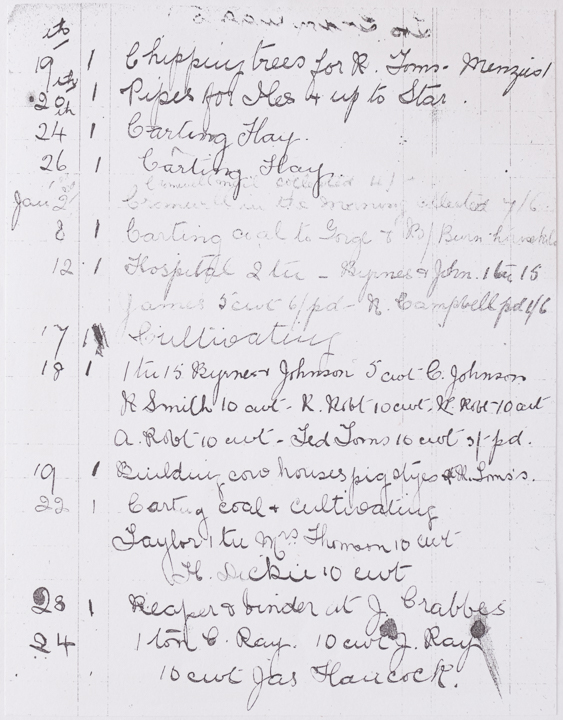 19 1 Chipping trees for R. Toms - Menzies 1
20 1 Pipes for Mes & up to Star.
24 1 Carting Hay.
26 1 Carting Hay.
collected 4/-
Jan 2 Cromwell in the morning collected 7/6.
8 1 Carting coal to Gorge & B/Burn household
12 1 Hospital 2 tn - Byrne & John. 1 tn 15
James 5 cwt 6/pd - R. Campbell pd 4/6
17 1 Cultivating
18 1 1 tn 15 Byrne & Johnson 5 cwt C. Johnson
R Smith 10 cwt - R. Robt 10 cwt. Robt 10 cwt
A. Robt 10 cwt - Ted Toms 10 cwt 5/- pd.
19 1 Building cow houses pig stye R. Toms's.
22 1 Carting coal & cultivating
Taylor 1 tn Mrs Thomson 10 cwt
H. Dickie 10 cwt
23 1 Reaper & binder at J. Crabbes
24 1 ton C. Ray. 10 cwt J. Ray
10 cwt Jas Hancock.